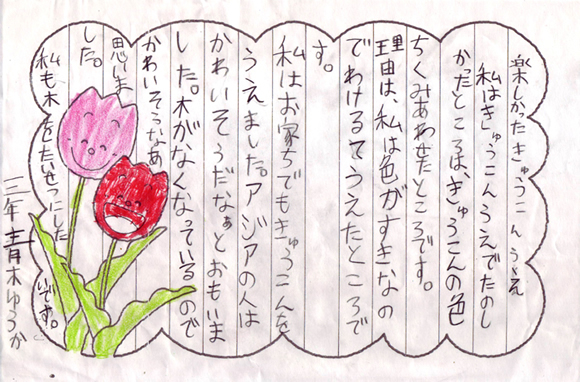 楽しかったきゅうこんうえ
私はきゅうこんうえでたのし
かったところは、ぎゅうこんの色
ちくみあわせたところです。
理由は、私は色がすきなの
でわけるてうえたところで
す。
私はお家ちでもきゅうこんを
うえました。アジアの人は
かわいそうだなぁとおもいま
した。木がなくなっているので
かわいそうなあ
思いま
した。
私も木をたいせつにした
いです。
三年青木ゆうか